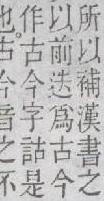 所以補漢書之
以前迭爲古今
作古今字詁是
也古今音之不